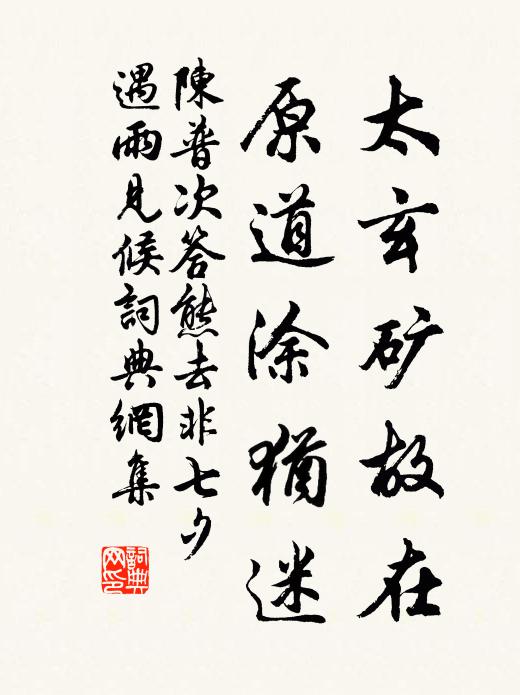 太玄矿故在
原道涂犹迷
陳普次答熊去非七夕
遇雨見候詞典網集
詞典网印